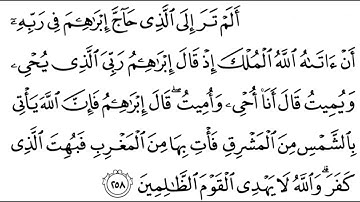 أَلَمْ تَرَ إِلَى ٱلَّذِى حَآجَّ إِبْرَٰهِـۧمَ فِى رَبِّهِۦٓ
أَنْ ءَاتَىٰهُ ٱللَّهُ ٱلْمُلْكَ إِذْ قَالَ إِبْرَٰهِـۧمُ رَبِّىَ ٱلَّذِى يُحْىِۦ
وَيُمِيتُ قَالَ أَنَا۠ أُحْىِۦ وَأُمِيتُ ۖ قَالَ إِبْرَٰهِـۧمُ فَإِنَّ ٱللَّهَ يَأْتِى
بِٱلشَّمْسِ مِنَ ٱلْمَشْرِقِ فَأْتِ بِهَا مِنَ ٱلْمَغْرِبِ فَبُهِتَ ٱلَّذِى
كَفَرَ ۗ وَٱللَّهُ لَا يَهْدِى ٱلْقَوْمَ ٱلظَّـٰلِمِينَ ٢٥٨